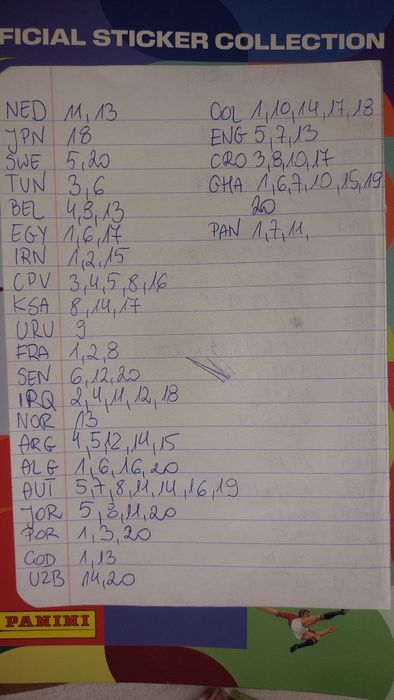 FICIAL STICKER COLLECTION
NED 11, 13
JPN 18
SWE 5, 20
TUN 3, 6
BEL 4, 8, 13
EGY 1, 6, 17
IRN 1, 2, 15
CPV 3, 4, 5, 8, 16
KSA 8, 14, 17
URU 9
FRA 1, 2, 8
SEN 6, 12, 20
IRQ 2, 4, 11, 12, 18
NOR 13
ARG 4, 5, 12, 14, 15
ALG 1, 6, 16, 20
AUT 5, 7, 8, 11, 14, 16, 19
JOR 5, 8, 11, 20
POR 1, 3, 20
COD 1, 13
UZB 14, 20
COL 1, 10, 14, 17, 18
ENG 5, 7, 13
CRO 3, 8, 10, 17
GHA 1, 6, 7, 10, 15, 19
20
PAN 1, 7, 11,
PANINI